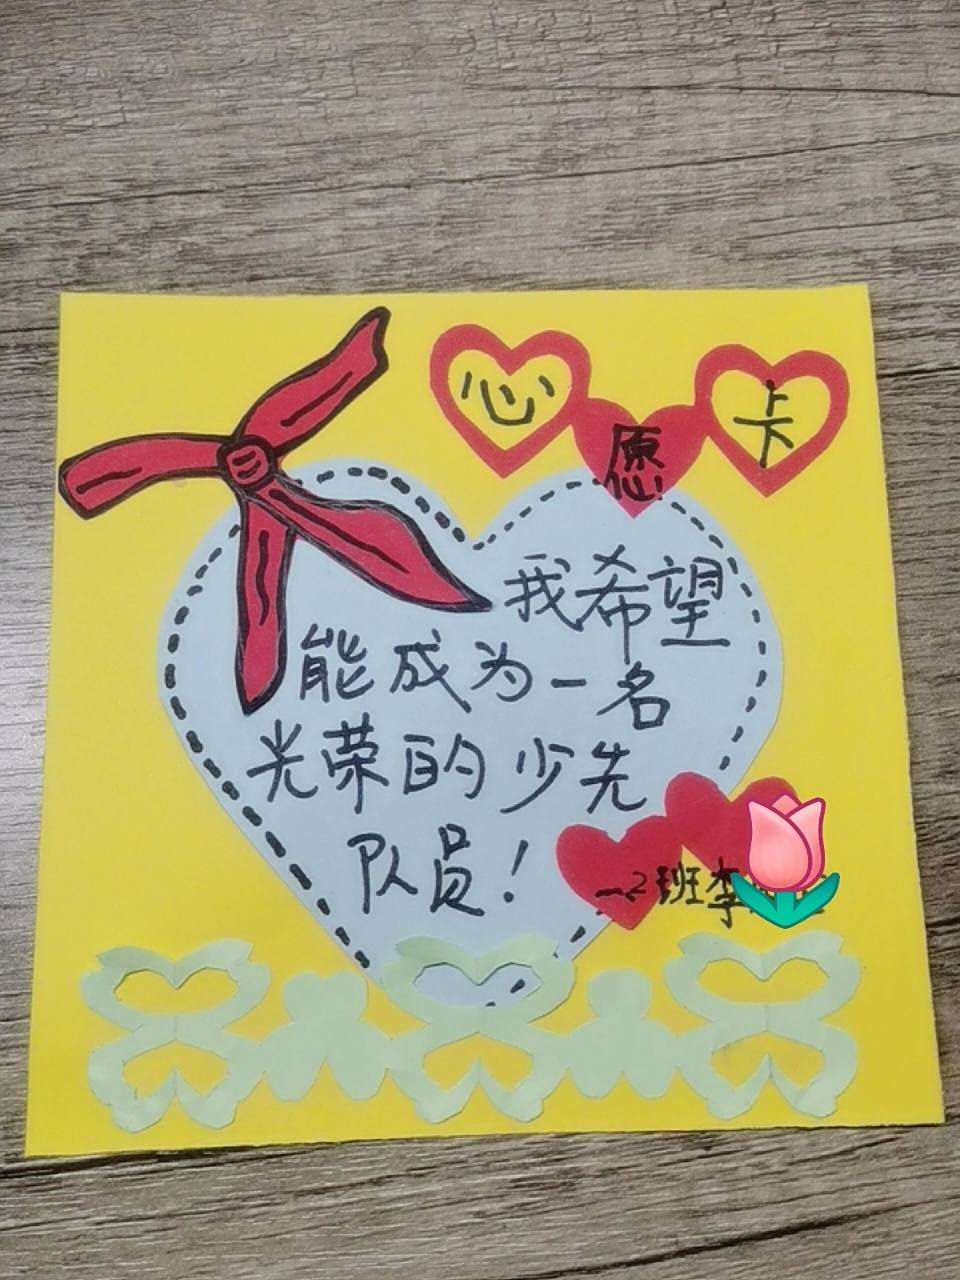 心愿卡
我希望
能成为一名
光荣的少先
队员！
一2班李